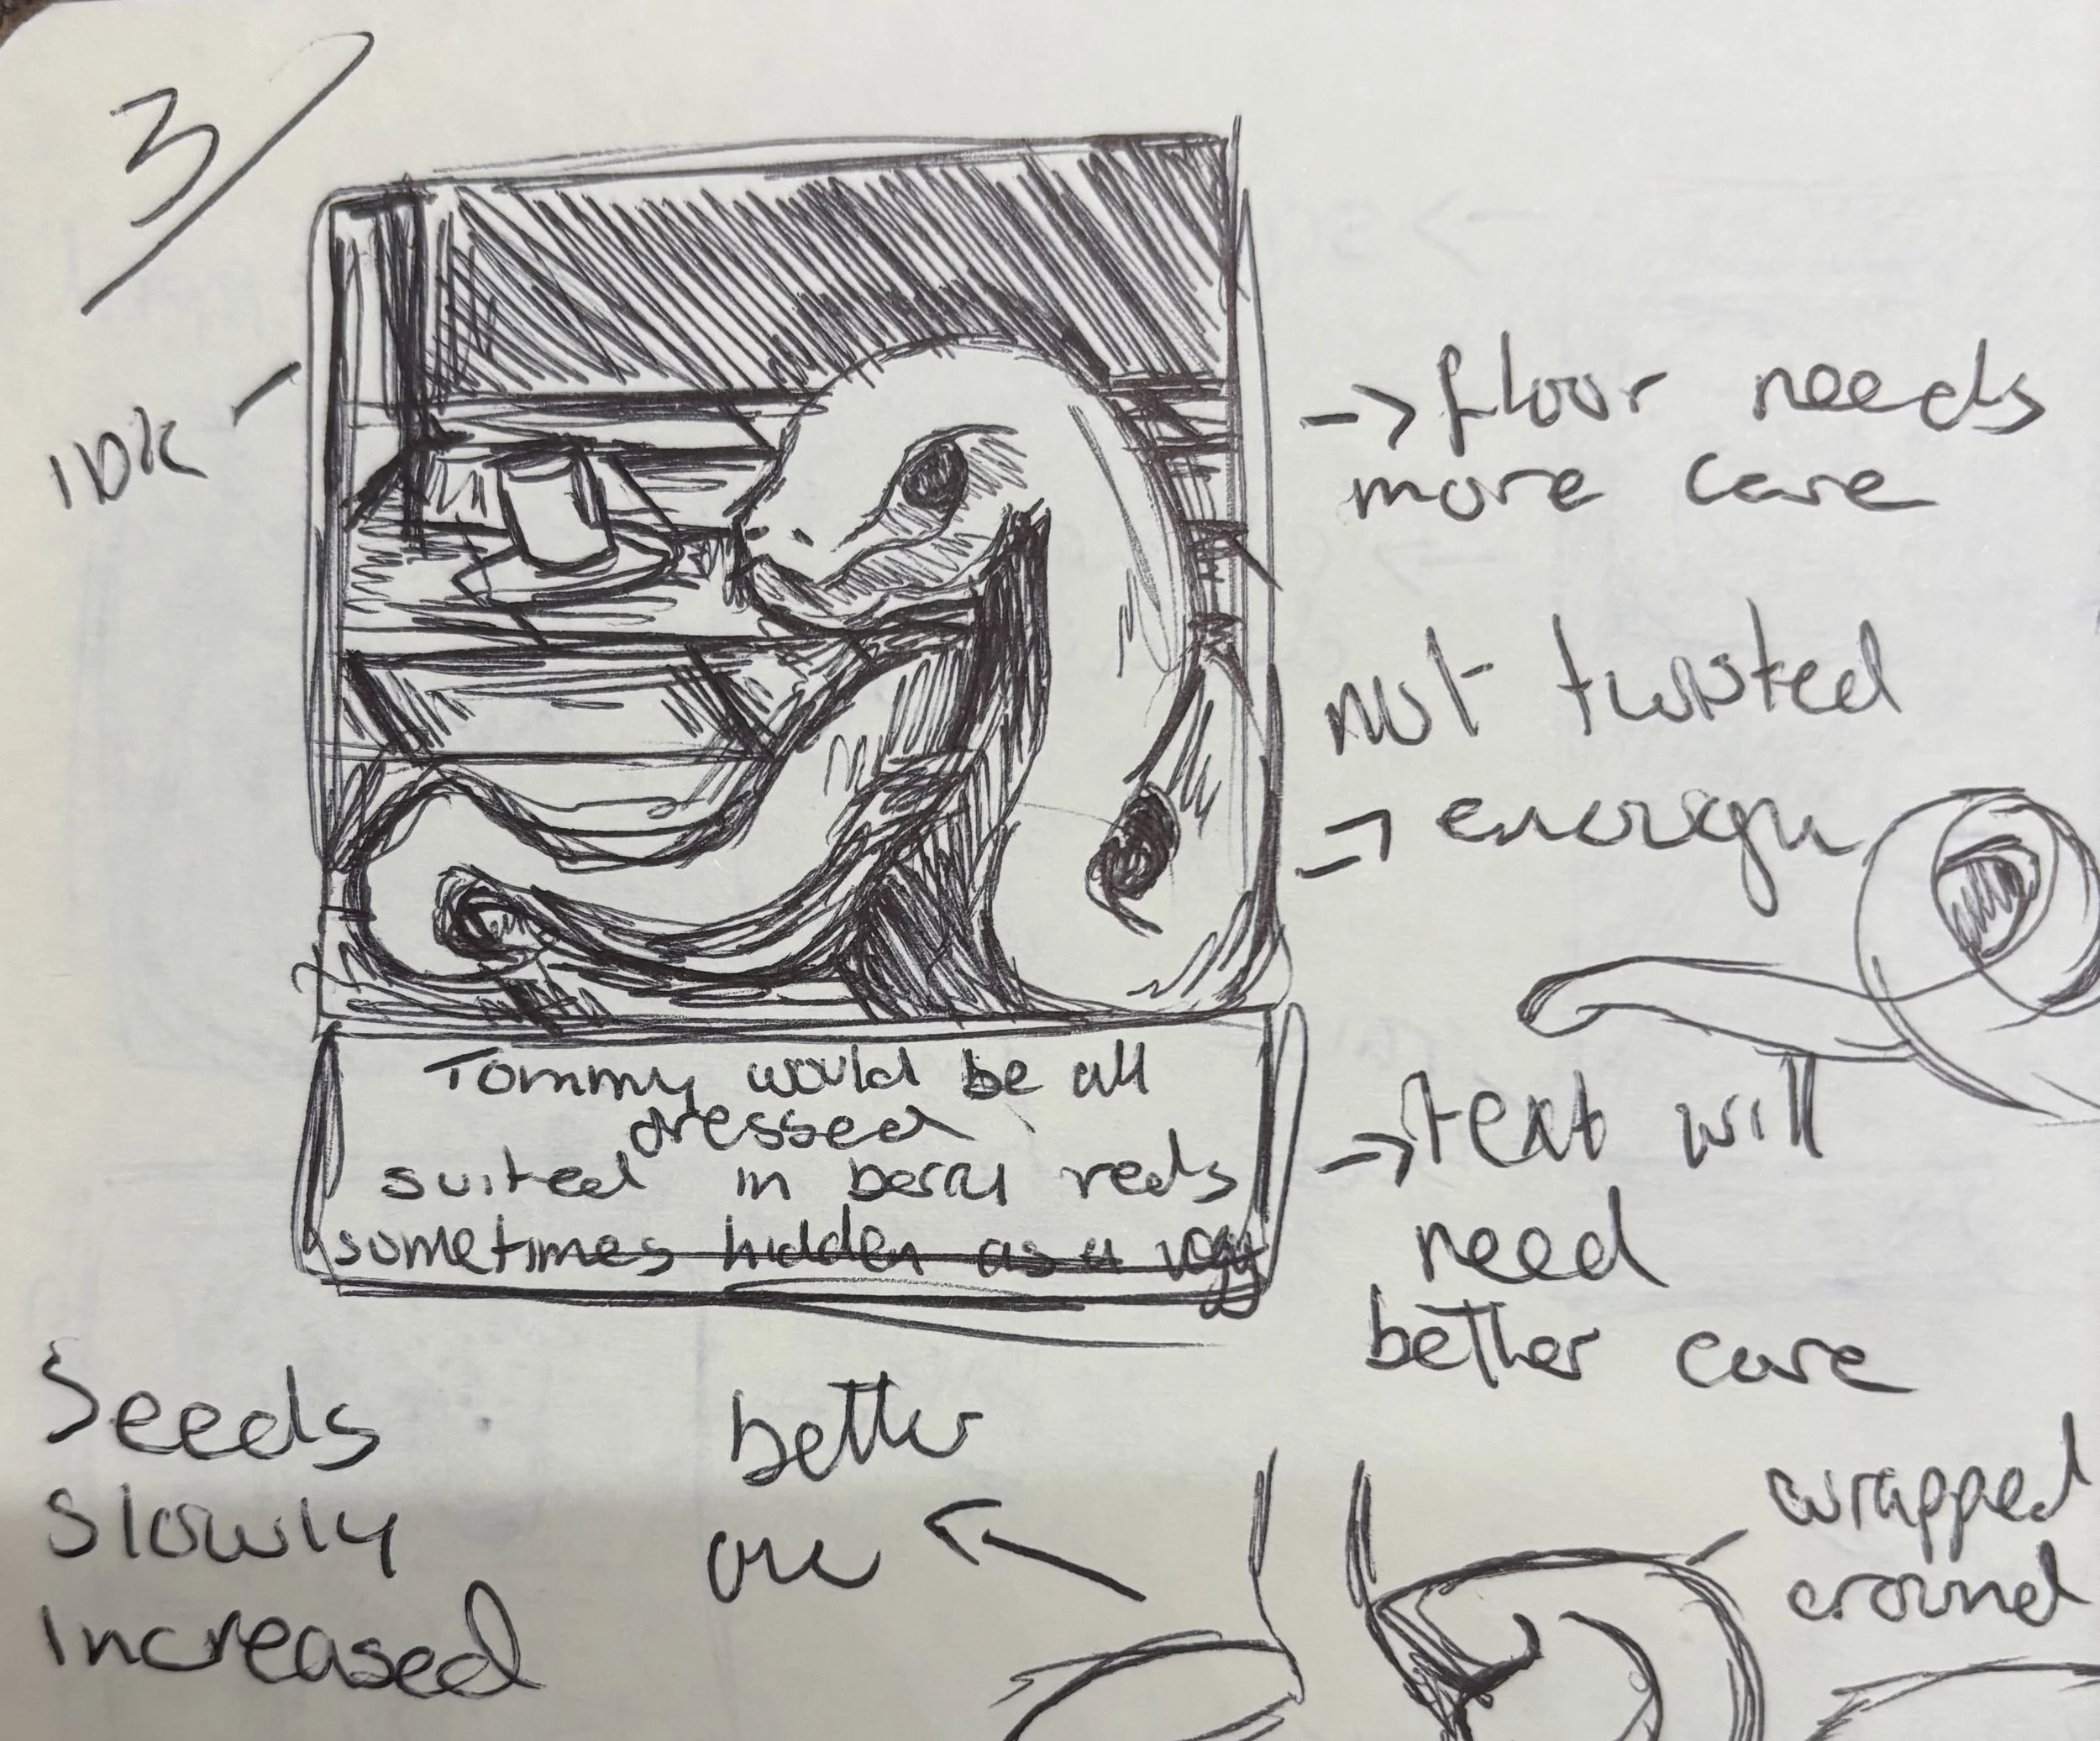 3/
IDK -
-> floor needs
more care
not twisted
->
Tommy would be all
dressed
suited in berry reds
sometimes hidden as a
-> text will
need
better care
Seeds
slowly
increased
better
wrapped
around